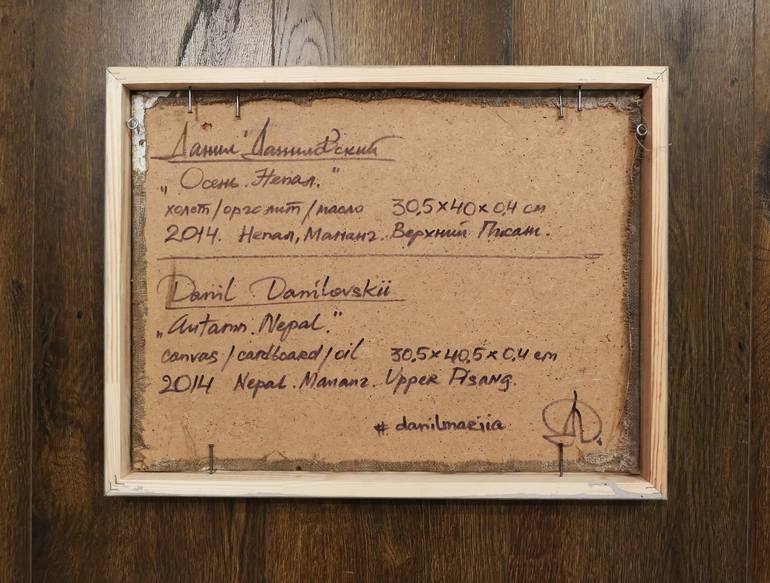 Данил Даниловский
„Осень. Непал."
холст/оргалит/масло 30,5×40×0,4 см
2014. Непал, Мананг. Верхний Писанг.
Danil Danilovskii
„Autamn. Nepal."
canvas/cardboard/oil 30,5×40,5×0,4 cm
2014 Nepal. Manang. Upper Pisang.
# danilmariia